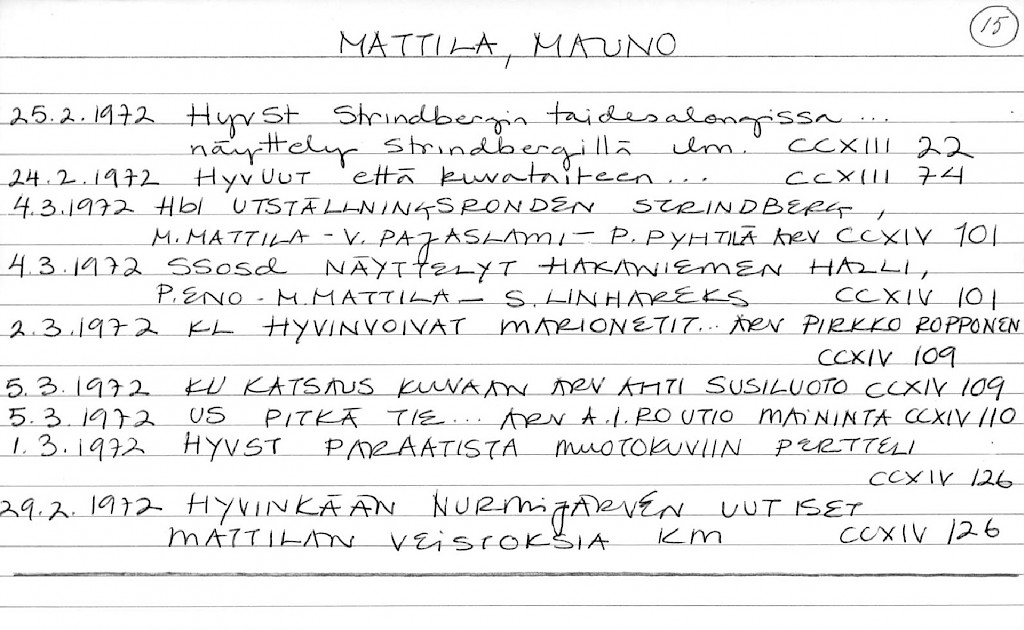 15
MATTILA, MAUNO
25.2.1972 HyvSt Strindbergin taidesalongissa ...
näyttely Strindbergillä ilm. CCXIII 22
24.2.1972 HYVUUT että kuvataiteen ... CCXIII 74
4.3.1972 Hbl UTSTÄLLNINGSRONDEN STRINDBERG,
M. MATTILA - V. PAJASLAMI - P. PYHTILÄ ARV CCXIV 101
4.3.1972 SSosd NÄYTTELYT HAKANIEMEN HALLI,
P. ENO - M. MATTILA - S. LINHAREKS CCXIV 101
2.3.1972 KL HYVINVOIVAT MARIONETIT... ARV PIRKKO ROPPONEN
CCXIV 109
5.3.1972 KU KATSAUS KUVAAN ARV AHTI SUSILUOTO CCXIV 109
5.3.1972 US PITKÄ TIE ... ARV A.I. ROUTIO MAININTA CCXIV 110
1.3.1972 HYVST PARAATISTA MUOTOKUVIIN PERTTELI
CCXIV 126
29.2.1972 HYVINKÄÄN NURMIJÄRVEN UUTISET
MATTILAN VEISTOKSIA KM CCXIV 126